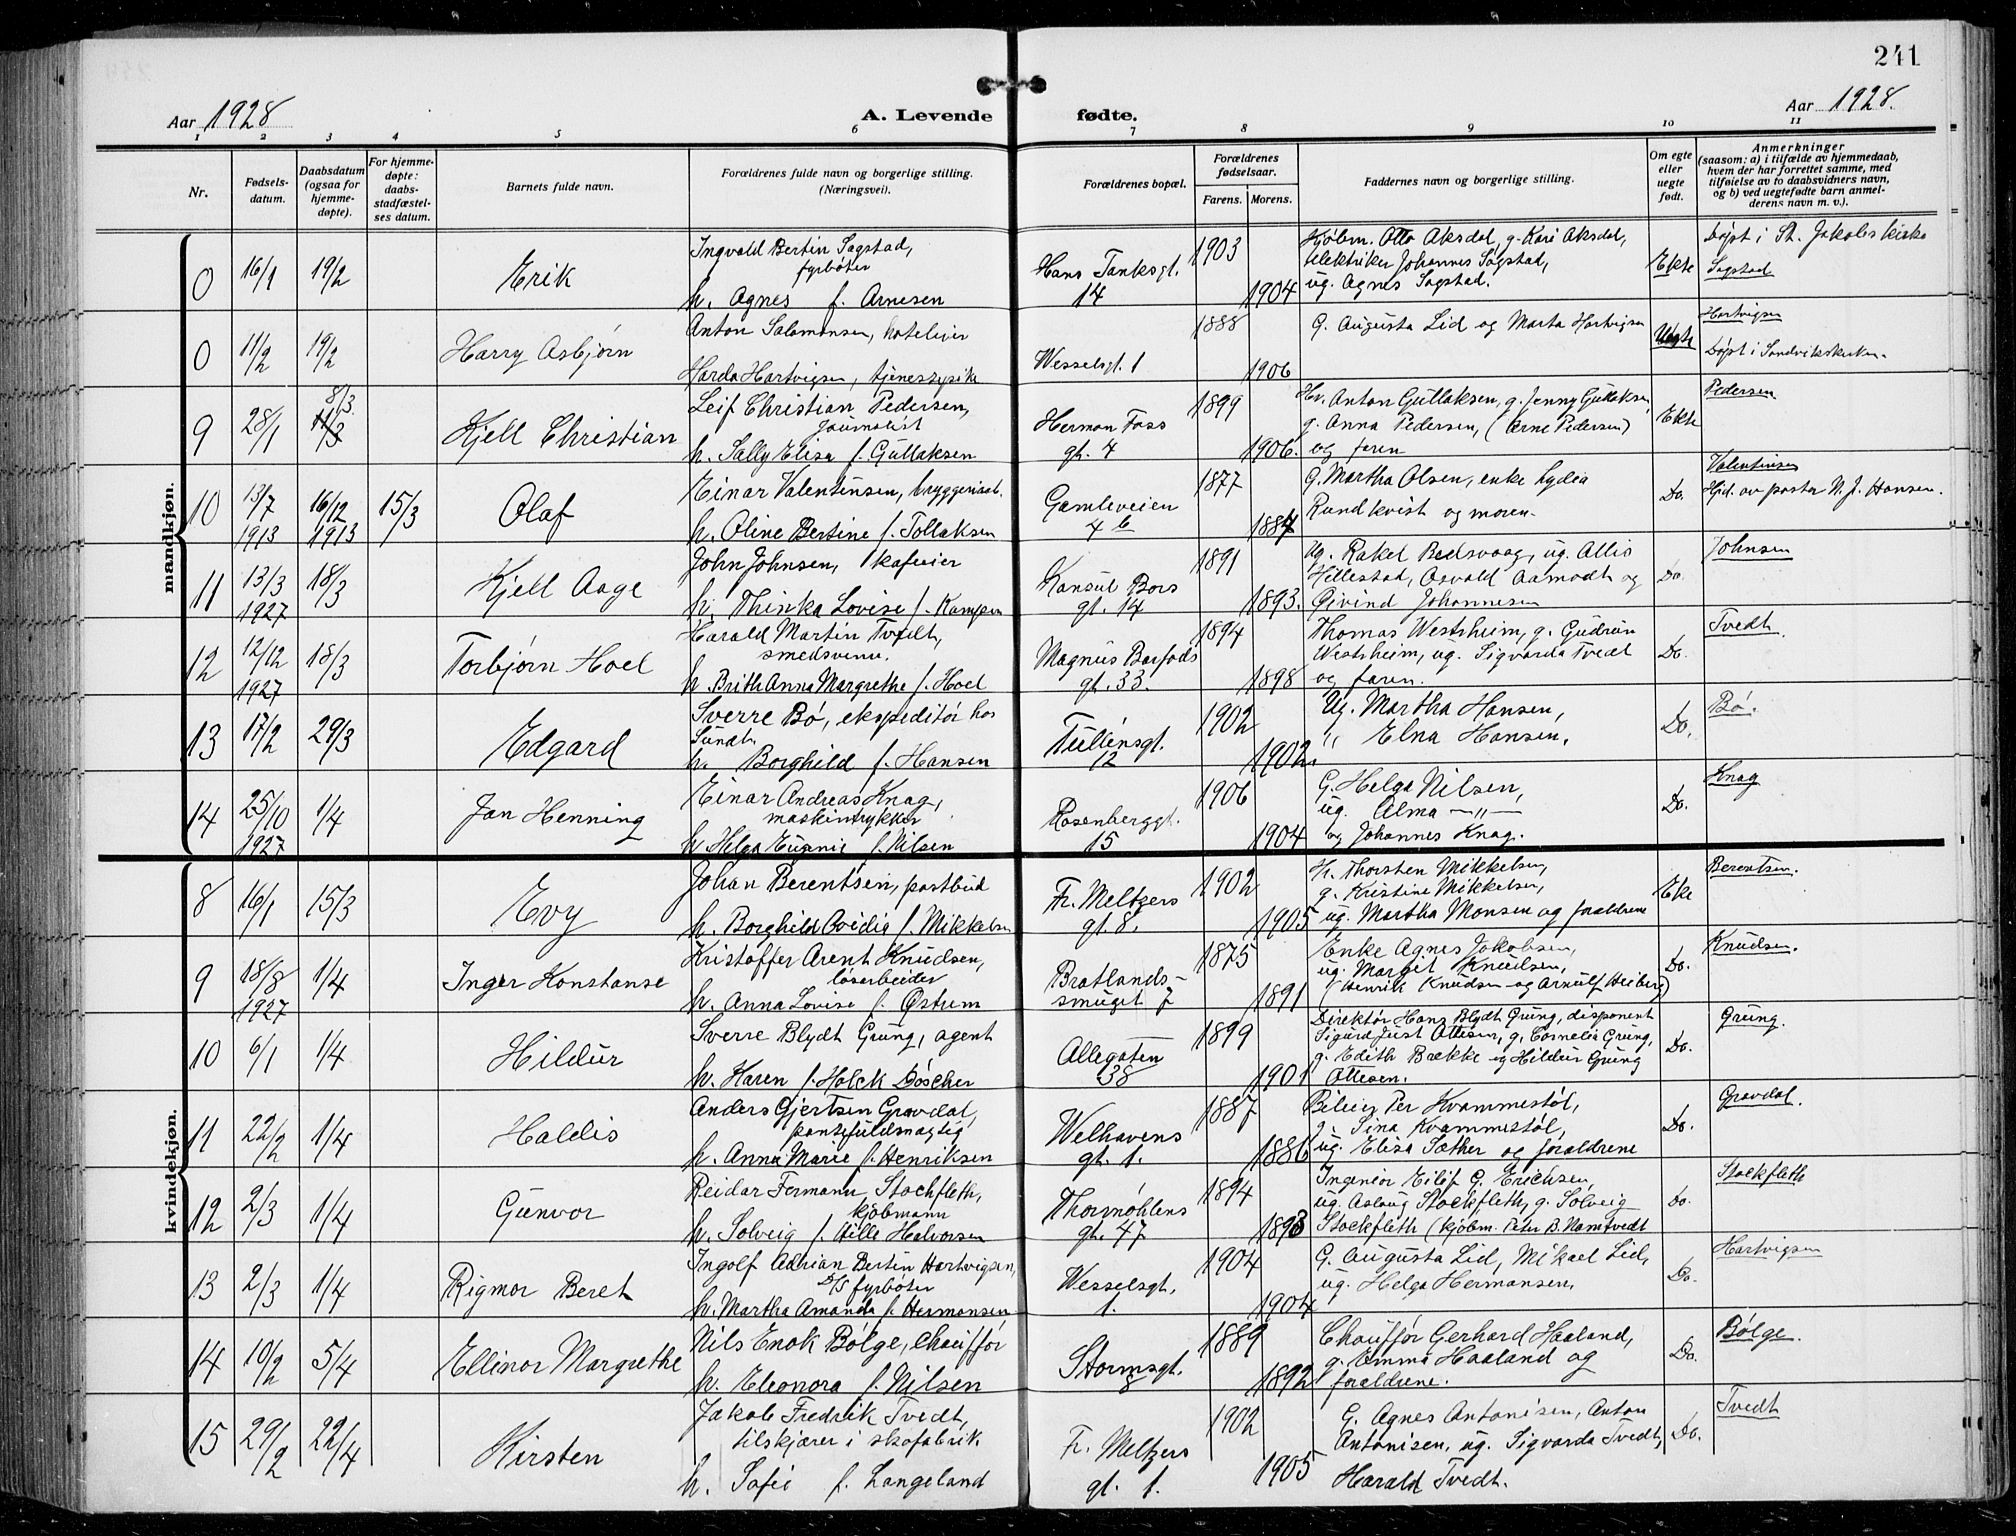 241
Aar 1928
A. Levende fødte.
Aar 1928.
1 2 3 4 5 6 7 8 9 10 11
Nr.
Fødsels-
datum.
Daabsdatum
(ogsaa for
hjemme-
døpte).
For hjemme-
døpte:
daabs-
stadfæstel-
ses datum.
Barnets fulde navn.
Forældrenes fulde navn og borgerlige stilling.
(Næringsvei).
Forældrenes bopæl.
Forældrenes
fødselsaar.
Farens. Morens.
Faddernes navn og borgerlige stilling.
Om egte
eller
uegte
født.
Anmerkninger
(saasom: a) i tilfælde av hjemmedaab,
hvem der har forrettet samme, med
tilføielse av to daabsvidners navn,
og b) ved uegtefødte barn anmel-
derens navn m. v.).
mandkjøn.
0 16/1 19/2 Erik
Ingvald Bertin Sagstad,
fyrbøter
h. Agnes f. Arnesen
Hans Tanksgt.
14
1903
1904
Kjøbm. Otto Aksdal, g. Kari Aksdal,
elektriker Johannes Sagstad,
ug. Agnes Sagstad.
Ekte
Døpt i St. Jakobs kirke
Sagstad
0 11/2 19/2 Harry Asbjørn
Anton Salomonsen, hoteleier
Harda Hartvigsen, tjenestepike
Wesselsgt. 1
1888
1906
G. Augusta Lid og Marta Hartvigsen
Uegte
Hartvigsen
Døpt i Sandvikskirken.
9 28/1 8/3
11/3
Kjell Christian
Leif Christian Pedersen,
journalist
h. Sally Elisa f. Gullaksen
Herman Foss
gt. 4
1899
1906.
Hv. Anton Gullaksen, g. Jenny Gullaksen,
g. Anna Pedersen, (Arne Pedersen)
og faren
Ekte
Pedersen
10 13/7
1913
16/12
1913
15/3 Olaf
Einar Valentinsen, bryggeriarb.
h. Oline Bertine f. Tollaksen
Gamleveien
4 b
1877
1884
G. Martha Olsen, enke Lydia
Rundkvist og moren.
Do.
Valentinsen
Hjd. av pastor N. J. Hansen.
11 13/3
1927
18/3 Kjell Aage
John Johnsen, kafeeier
h. Thinka Lovise f. Kampen
Konsul Børs
gt. 14
1891
1893.
Ug. Rakel Bedsvaag, ug. Allis
Hillestad, Osvald Aamodt og
Øivind Johannesen
Do.
Johnsen
12 12/12
1927
18/3 Torbjørn Hoel
Harald Martin Tvedt,
smedsvenn.
h. Brith Anna Margrethe f. Hoel
Magnus Barfods
gt. 33.
1894
1898
Thomas Westrheim, g. Gudrun
Westrheim, ug. Sigvarda Tvedt
og faren.
Do.
Tvedt.
13 17/2 29/3 Edgard
Sverre Bø, ekspeditør hos
Sundt.
h. Borghild f. Hansen
Tullinsgt.
12
1902
1902.
Ug. Martha Hansen,
" Elna Hansen.
Do.
Bø.
14 25/10
1927
1/4 Jan Henning
Einar Andreas Knag,
maskintrykker
h. Helga Eugenie f. Nilsen
Rosenberggt.
15
1906
1904
G. Helga Nilsen,
ug. Alma —"—
og Johannes Knag.
Do.
Knag
kvindekjøn.
8 16/1 15/3 Evy
Johan Berentsen, postbud
h. Borghild Ovidia f. Mikkelsen
Fr. Meltzers
gt. 8.
1902
1905
Hr. Thorsten Mikkelsen,
g. Kristine Mikkelsen,
ug. Martha Monsen og foraldrene
Eke
Berentsen.
9 18/8
1927
1/4 Inger Konstanse
Kristoffer Arent Knudsen,
løsarbeider
h. Anna Lovise f. Østrem
Bratlands-
smuget 7
1875
1891
Enke Agnes Jakobsen,
ug. Margit Knudsen,
(Henrik Knudsen og Arnulf Heiberg)
Do.
Knudsen.
10 6/1 1/4 Hildur
Sverre Blydt Grung, agent
h. Karen f. Holck Døscher
Allegaten
38
1899
1901
Direktør Hans Blydt Grung, disponent
Sigurd Just Ottesen, g. Cornelia Grung,
g. Edith Brekke og Hildur Grung
Ottesen.
Do.
Grung.
11 22/2 1/4 Haldis
Anders Gjertsen Gravdal,
pantefuldmægtig
h. Anna Marie f. Henriksen
Welhavens
gt. 1.
1887
1886
Bileier Per Kvammestøl,
g. Sina Kvammestøl,
ug. Elisa Sæther og foraldrene
Do.
Gravdal.
12 2/3 1/4 Gunvor
Reidar Fermann Stockfleth,
kjøbmann
h. Solveig f. Hille Halvorsen
Thormøhlens
gt. 47
1894
1893
Ingeniør Eilif G. Erichsen,
ug. Aslaug Stockfleth, g. Solveig
Stockfleth (kjøbm. Peter B. Namtvedt
Do.
Stockfleth
13 2/3 1/4 Rigmor Beret
Ingolf Adrian Bertin Hartvigsen,
D/S fyrbøter
h. Martha Amanda f. Hermansen
Wesselsgt.
1.
1904
1904
G. Augusta Lid, Mikael Lid,
ug. Helga Hermansen.
Do.
Hartvigsen
14 10/2 5/4 Ellinor Margrethe
Nils Enok Bølge, chauffør
h. Eleonora f. Nilsen
Stormsgt.
8
1889
1892
Chauffør Gerhard Haaland,
g. Emma Haaland og
foraldrene.
Do.
Bølge.
15 29/2 22/4 Kirsten
Jakob Fredrik Tvedt,
tilskjærer i skofabrik.
h. Sofie f. Langeland
Fr. Meltzers
gt. 1.
1902
1905
G. Agnes Antonisen, Anton
Antonisen, ug. Sigvarda Tvedt,
Harald Tvedt.
Do.
Tvedt